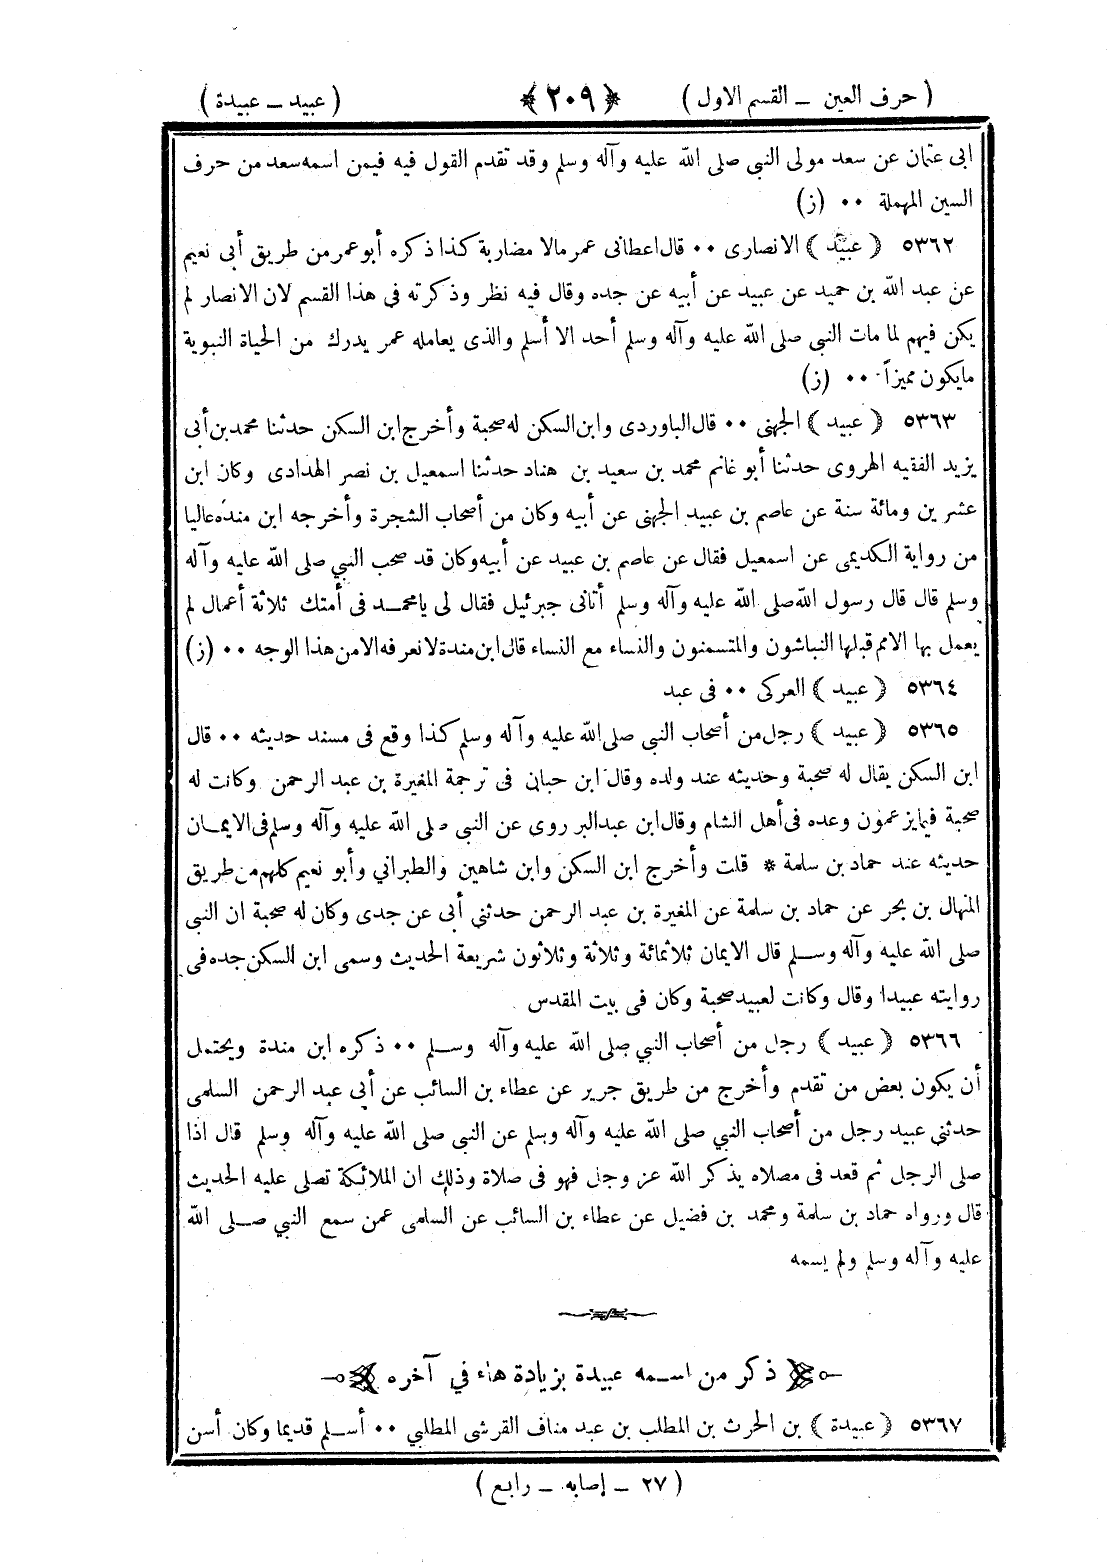 ( حرف العين ـ القسم الاول ) ﴿ ٢٠٩ ﴾ ( عبيد ـ عبيدة )
ابى عثمان عن سعد مولى النبى صلى الله عليه وآله وسلم وقد تقدم القول فيه فيمن اسمه سعد من حرف
السين المهملة ٠٠ (ز)
٥٣٦٢ ﴿ عبيد ﴾ الانصارى ٠٠ قال اعطانى عمر مالا مضاربة كذا ذكره أبو عمر من طريق أبى نعيم
عن عبد الله بن حميد عن عبيد عن أبيه عن جده وقال فيه نظر وذكرته فى هذا القسم لان الانصار لم
يكن فيهم لما مات النبى صلى الله عليه وآله وسلم أحد الا أسلم والذى يعامله عمر يدرك من الحياة النبوية
مايكون مميزاً ٠٠ (ز)
٥٣٦٣ ﴿ عبيد ﴾ الجهنى ٠٠ قال الباوردى وابن السكن له صحبة وأخرج ابن السكن حدثنا محمد بن أبى
يزيد الفقيه الهروى حدثنا أبو غانم محمد بن سعيد بن هناد حدثنا اسمعيل بن نصر الهدادى وكان ابن
عشرين ومائة سنة عن عاصم بن عبيد الجهنى عن أبيه وكان من أصحاب الشجرة وأخرجه ابن منده عاليا
من رواية الكديمى عن اسمعيل فقال عن عاصم بن عبيد عن أبيه وكان قد صحب النبي صلى الله عليه وآله
وسلم قال قال رسول الله صلى الله عليه وآله وسلم أتانى جبرئيل فقال لى يامحمد فى أمتك ثلاثة أعمال لم
يعمل بها الامم قبلها النباشون والمتسمنون والنساء مع النساء قال ابن مندة لا نعرفه الا من هذا الوجه ٠٠ (ز)
٥٣٦٤ ﴿ عبيد ﴾ العركى ٠٠ فى عبد
٥٣٦٥ ﴿ عبيد ﴾ رجل من أصحاب النبى صلى الله عليه وآله وسلم كذا وقع فى مسند حديثه ٠٠ قال
ابن السكن يقال له صحبة وحديثه عند ولده وقال ابن حبان فى ترجمة المغيرة بن عبد الرحمن وكانت له
صحبة فيما يزعمون وعده فى أهل الشام وقال ابن عبدالبر روى عن النبى صلى الله عليه وآله وسلم فى الايمان
حديثه عند حماد بن سلمة * قلت وأخرج ابن السكن وابن شاهين والطبراني وأبو نعيم كلهم من طريق
المنهال بن بحر عن حماد بن سلمة عن المغيرة بن عبد الرحمن حدثنى أبى عن جدى وكان له صحبة ان النبى
صلى الله عليه وآله وسلم قال الايمان ثلاثمائة وثلاثة وثلاثون شريعة الحديث وسمى ابن السكن جده فى
روايته عبيدا وقال وكانت لعبيد صحبة وكان فى بيت المقدس
٥٣٦٦ ﴿ عبيد ﴾ رجل من أصحاب النبي صلى الله عليه وآله وسلم ٠٠ ذكره ابن مندة ويحتمل
أن يكون بعض من تقدم وأخرج من طريق جرير عن عطاء بن السائب عن أبى عبد الرحمن السلمى
حدثنى عبيد رجل من أصحاب النبي صلى الله عليه وآله وسلم عن النبى صلى الله عليه وآله وسلم قال اذا
صلى الرجل ثم قعد فى مصلاه يذكر الله عز وجل فهو فى صلاة وذلك ان الملائكة تصلى عليه الحديث
قال ورواه حماد بن سلمة ومحمد بن فضيل عن عطاء بن السائب عن السلمى عمن سمع النبي صلى الله
عليه وآله وسلم ولم يسمه
ذكر من اسمه عبيدة بزيادة هاء في آخره
٥٣٦٧ ﴿ عبيدة ﴾ بن الحرث بن المطلب بن عبد مناف القرشى المطلبي ٠٠ أسلم قديما وكان أسن
( ٢٧ ـ إصابه ـ رابع )